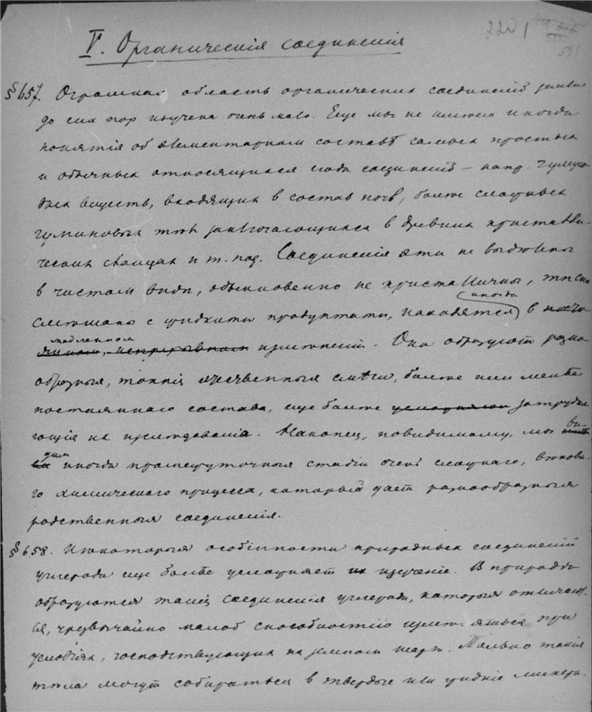 V. Органическія соединенія
§ 657. Огромная область органических соединеній земли
до сих пор изучена очень мало. Еще мы не имѣем иногда
понятія об элементарном составѣ самых простых
и обычных относящихся сюда соединеній – напр. гумусо-
вых веществ, входящих в состав почв, болѣе сложных
гуминовых тѣл заключающихся в древних кристалли-
ческих сланцах и т. под. Соединенія эти не выдѣлены
в чистом видѣ, обыкновенно не кристалличны, тѣсно
смѣшаны с жидкими продуктами, находятся иногда в
медленном измѣненіи. Они образуют разно-
образныя, тонкія смѣси, болѣе или менѣе
постояннаго состава, еще болѣе затрудня-
ющія их изслѣдованія. Наконец, повидимому, мы ви-
дим иногда промежуточныя стадіи очень сложнаго, вѣково-
го химическаго процесса, который дает разнообразныя
родственныя соединенія.
§ 658. Нѣкоторыя особенности природных соединеній
углерода еще болѣе усложняет их изученіе. В природѣ
образуются такія соединенія углерода, которыя отличают-
ся, чрезвычайно малой способностью измѣняться при
условіях, господствующих на земном шарѣ. Только такія
тѣла могут собираться в твердые или жидкіе минера-